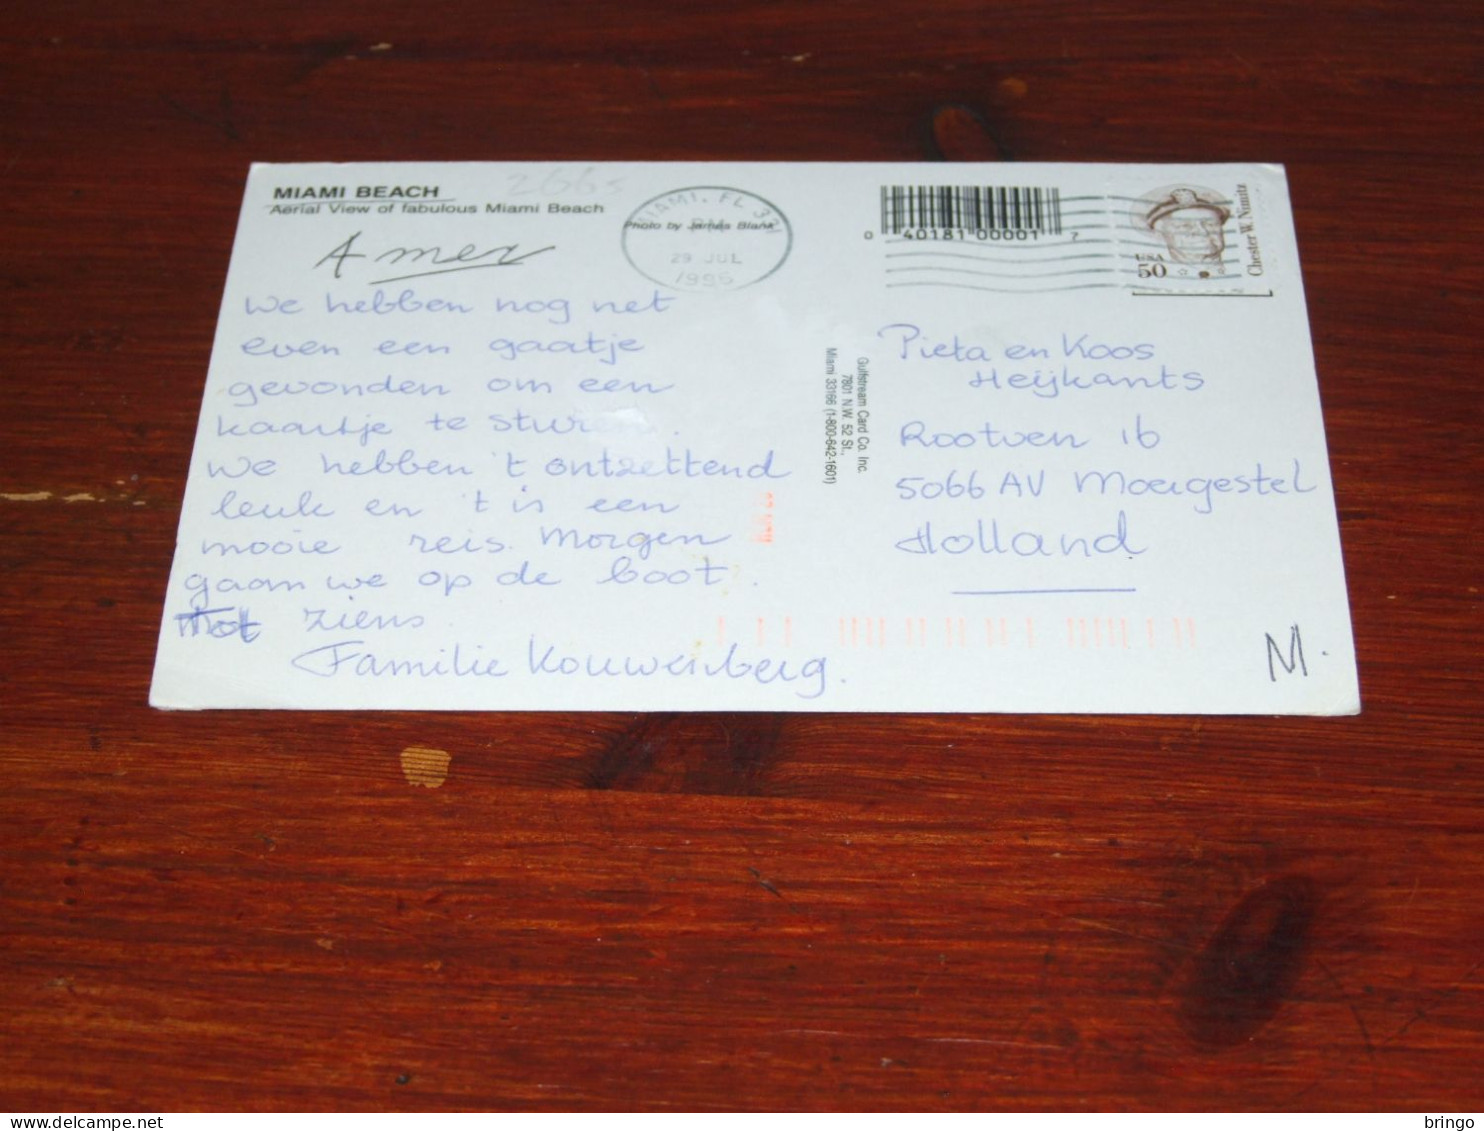 MIAMI BEACH
Aerial View of fabulous Miami Beach
2665
Amer
MIAMI, FL 331
PM
29 JUL
1996
Photo by James Blank
0 40181 00001 7
USA
50
Chester W. Nimitz
we hebben nog net
even een gaatje
gevonden om een
kaartje te sturen.
we hebben 't ontzettend
leuk en 't is een
mooie reis. Morgen
gaan we op de boot.
Tot ziens
Familie Kouwenberg.
Gulfstream Card Co. Inc.
7801 N.W. 52 St.,
Miami 33166 (1-800-642-1601)
Pieta en Koos
Heijkants
Rootven 16
5066 AV Moergestel
Holland
M.
bringo